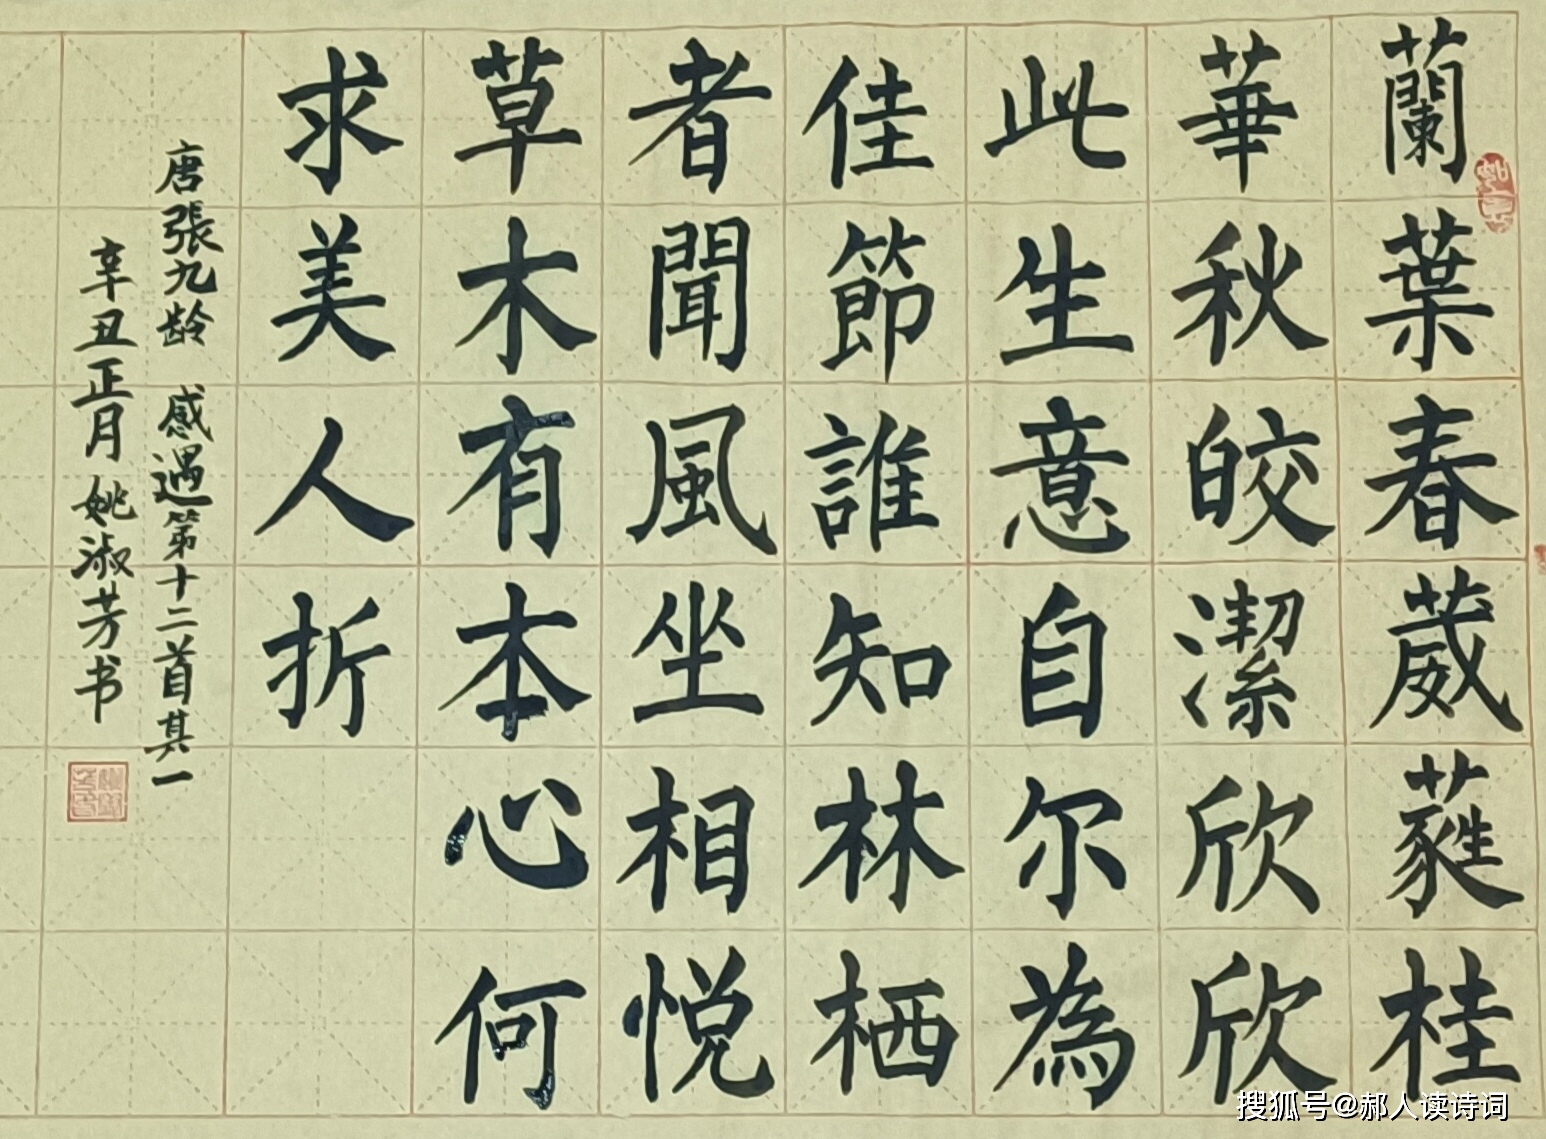 蘭葉春葳蕤桂
華秋皎潔欣欣
此生意自尔為
佳節誰知林栖
者聞風坐相悦
草木有本心何
求美人折
唐張九龄 感遇第十二首其一
辛丑正月姚淑芳书
搜狐号@郝人读诗词